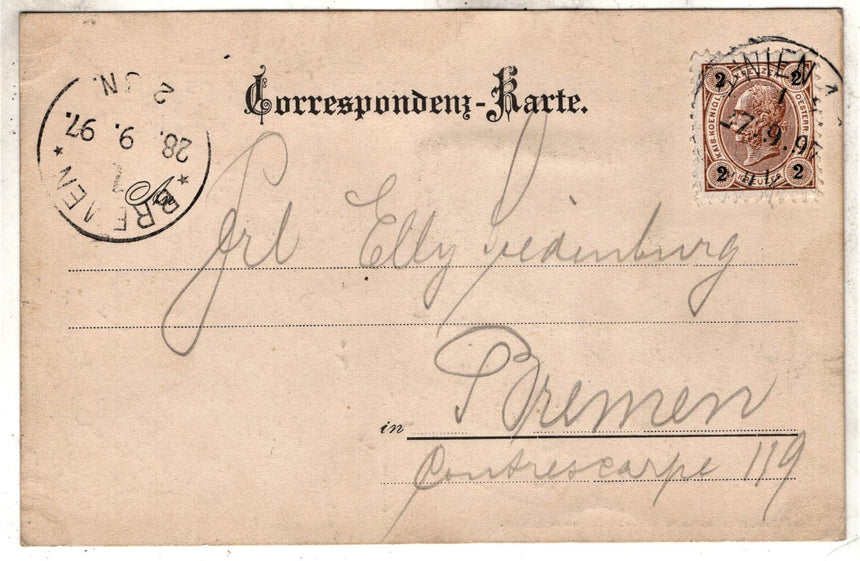 Correspondenz-Karte.
Frl Elly
Bremen
in
Contrescarpe 119
BREMEN
28. 9. 97.
2 - 3 N.
WIEN
27. 9. 97
2 2
KAIS. KOENIGL. OESTERR.
KREUZER
2 2